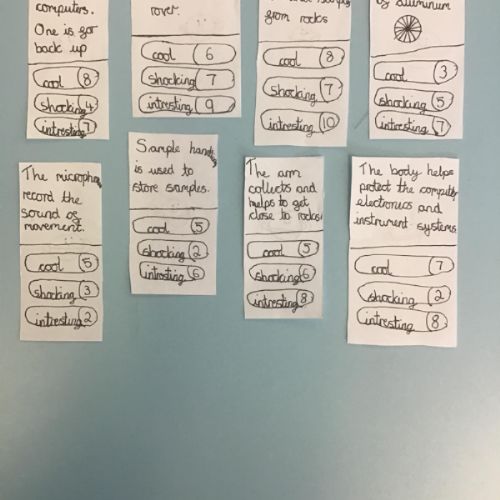 computers.
One is for
back up
cool 8
shocking 4
intresting 7
rover.
cool 6
shocking 7
intresting 9
from rocks
cool 8
shocking 7
intresting 10
of aluminum
cool 3
shocking 5
intresting 7
The microphone
record the
sound of
movement.
cool 5
shocking 3
intresting 2
Sample handling
is used to
store samples.
cool 5
shocking 2
intresting 6
The arm
collects and
helps to get
close to rocks
cool 5
shocking 6
intresting 8
The body helps
protect the computer
electronics and
instrument systems
cool 7
shocking 2
intresting 8